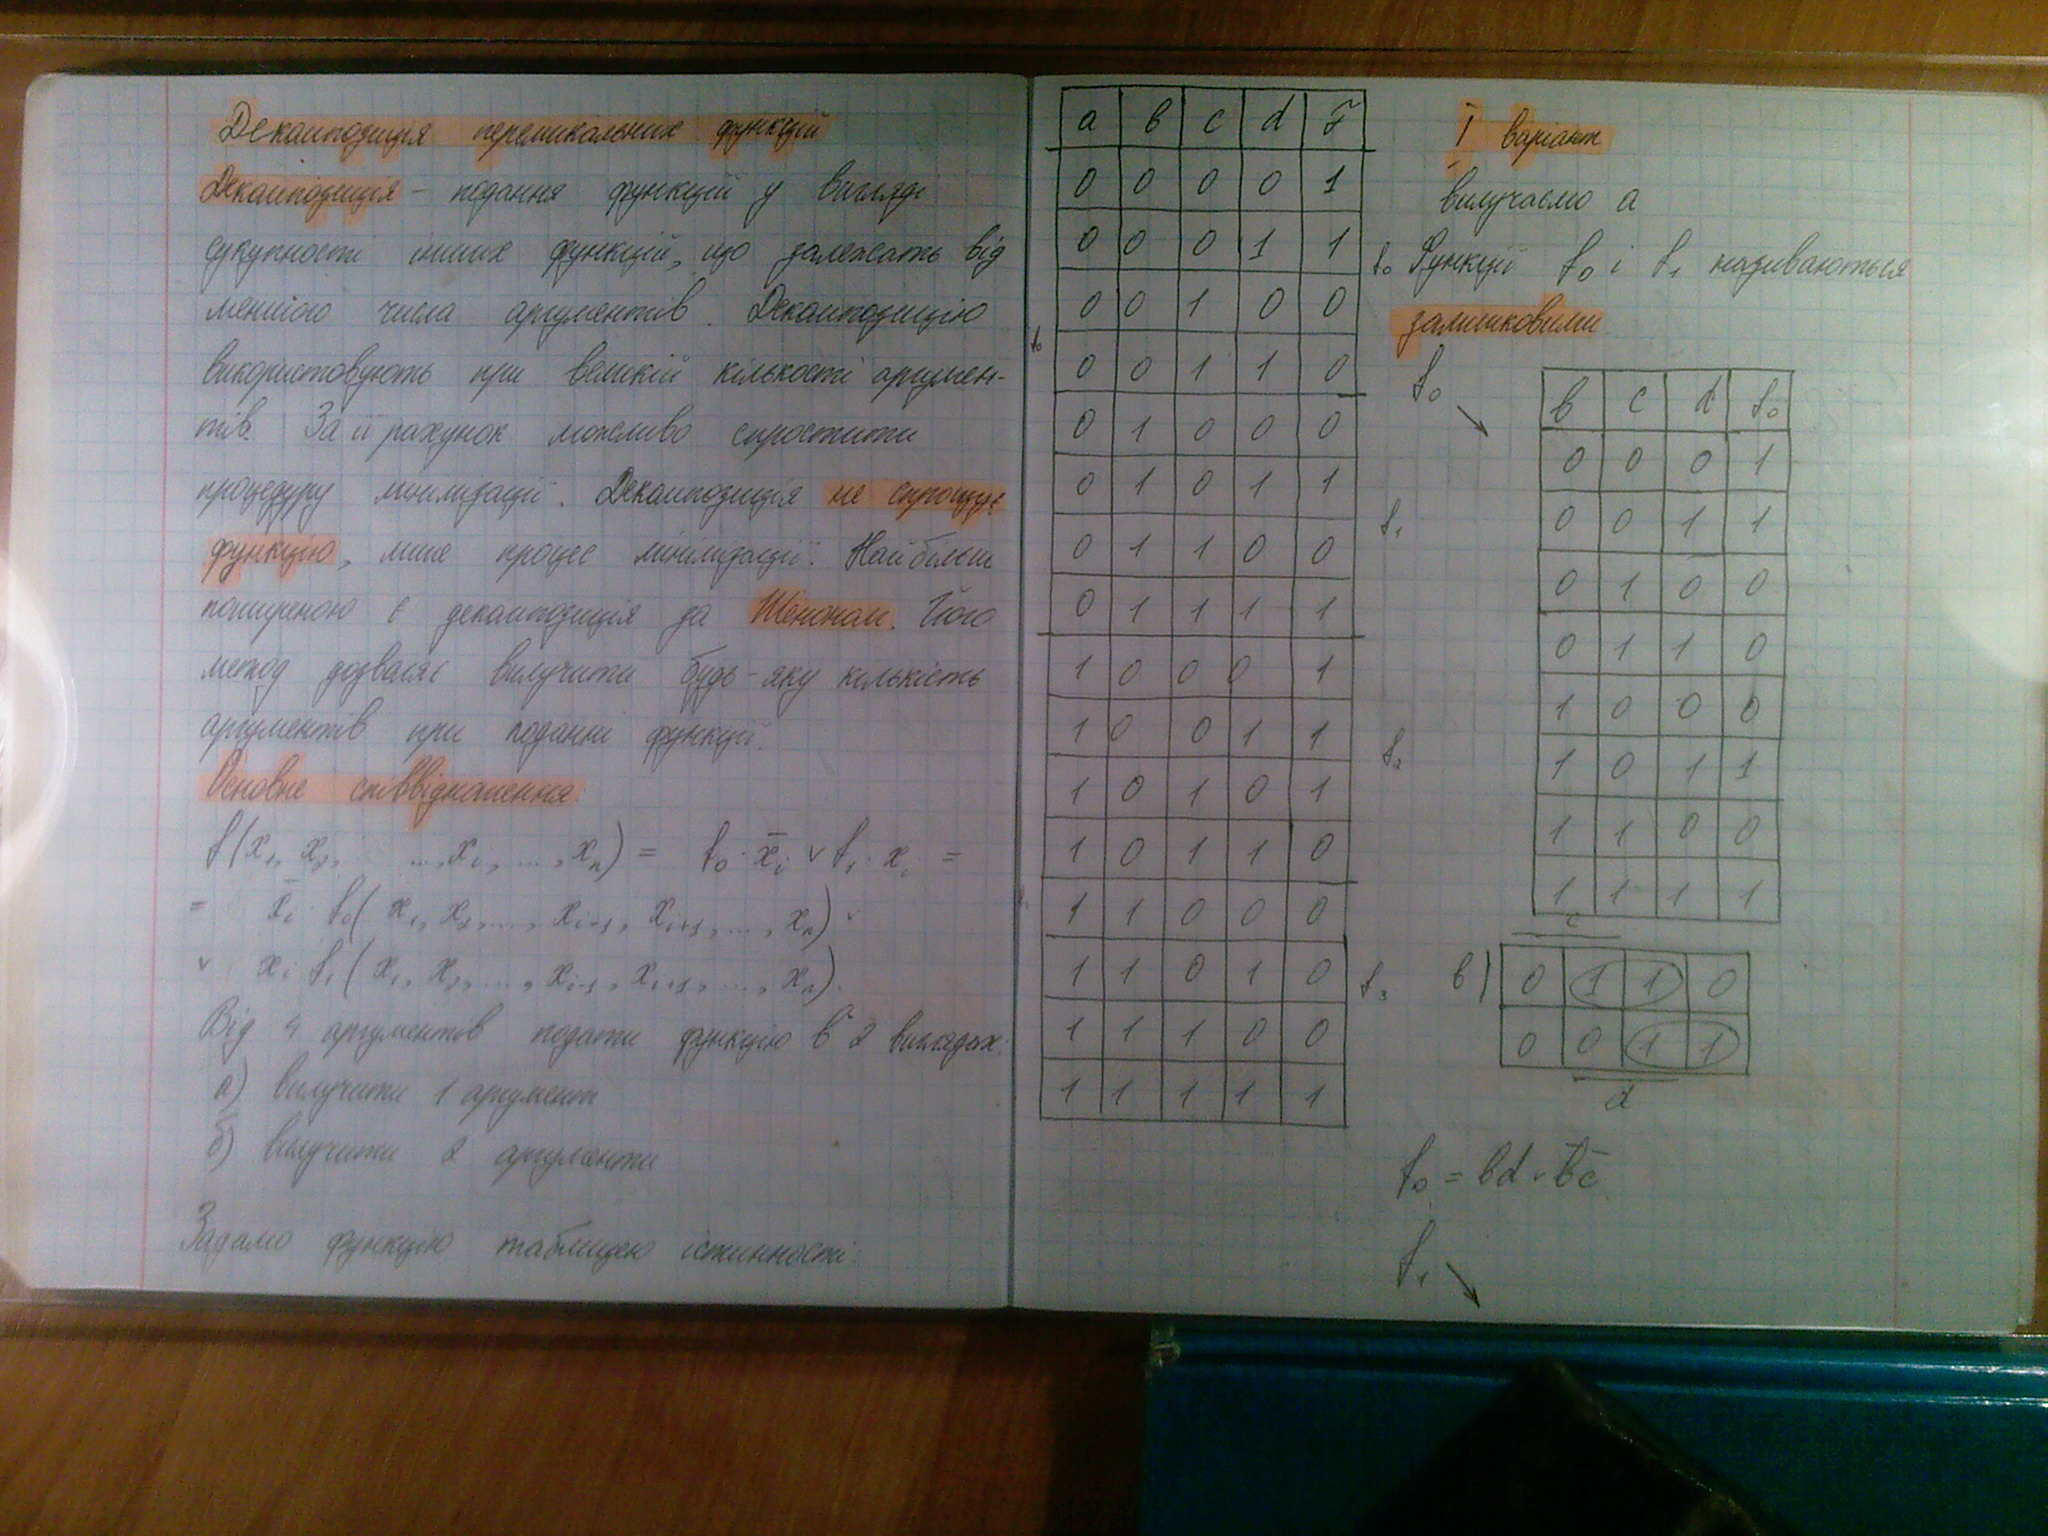 Декомпозиція перемикальних функцій
Декомпозиція – подання функцій у вигляді
сукупності інших функцій, що залежать від
меншого числа аргументів. Декомпозицію
використовують при великій кількості аргумен-
тів. За її рахунок можливо спростити
процедуру мінімізації. Декомпозиція не спрощує
функцію, лише процес мінімізації. Найбільш
поширеною є декомпозиція за Шеноном. Його
метод дозволяє вилучити будь-яку кількість
аргументів при поданні функції.
Основне співвідношення:
f(x₁, x₂, ..., xᵢ, ..., xₙ) = f₀·x̄ᵢ ∨ f₁·xᵢ =
= x̄ᵢ f₀(x₁, x₂, ..., xᵢ₋₁, xᵢ₊₁, ..., xₙ) ∨
∨ xᵢ f₁(x₁, x₂, ..., xᵢ₋₁, xᵢ₊₁, ..., xₙ).
Від 4 аргументів подати функцію в 2 виглядах:
а) вилучити 1 аргумент
б) вилучити 2 аргументи
Задамо функцію таблицею істинності:
a b c d F
0 0 0 0 1
0 0 0 1 1
0 0 1 0 0
0 0 1 1 0
0 1 0 0 0
0 1 0 1 1
0 1 1 0 0
0 1 1 1 1
1 0 0 0 1
1 0 0 1 1
1 0 1 0 1
1 0 1 1 0
1 1 0 0 0
1 1 0 1 0
1 1 1 0 0
1 1 1 1 1
f₀
f₀
f₁
f₂
f₃
I варіант
вилучаємо a
Функції f₀ і f₁ називаються
залишковими
f₀ ↘
b c d f₀
0 0 0 1
0 0 1 1
0 1 0 0
0 1 1 0
1 0 0 0
1 0 1 1
1 1 0 0
1 1 1 1
c
b| 0 1 1 0
0 0 1 1
d
f₀ = bd ∨ b̄c̄
f₁ ↘